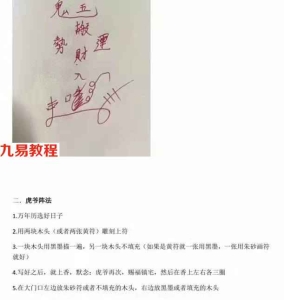 鬼五搬運
勢財
九
九易教程
二.虎爷阵法
1.万年历选好日子
2.用两块木头（或者两张黄符）雕刻上符
3.一块木头用黑墨描一遍，另一块木头不填充（如果是黄符就一张用黑墨，一张用朱砂画符就好）
4.写好之后，就上香，默念：虎爷再次，赐福镇宅，然后在香上左右各三圈
5.在大门口左边放朱砂符或者不填充的木头，右边放黑墨或者填充的木头